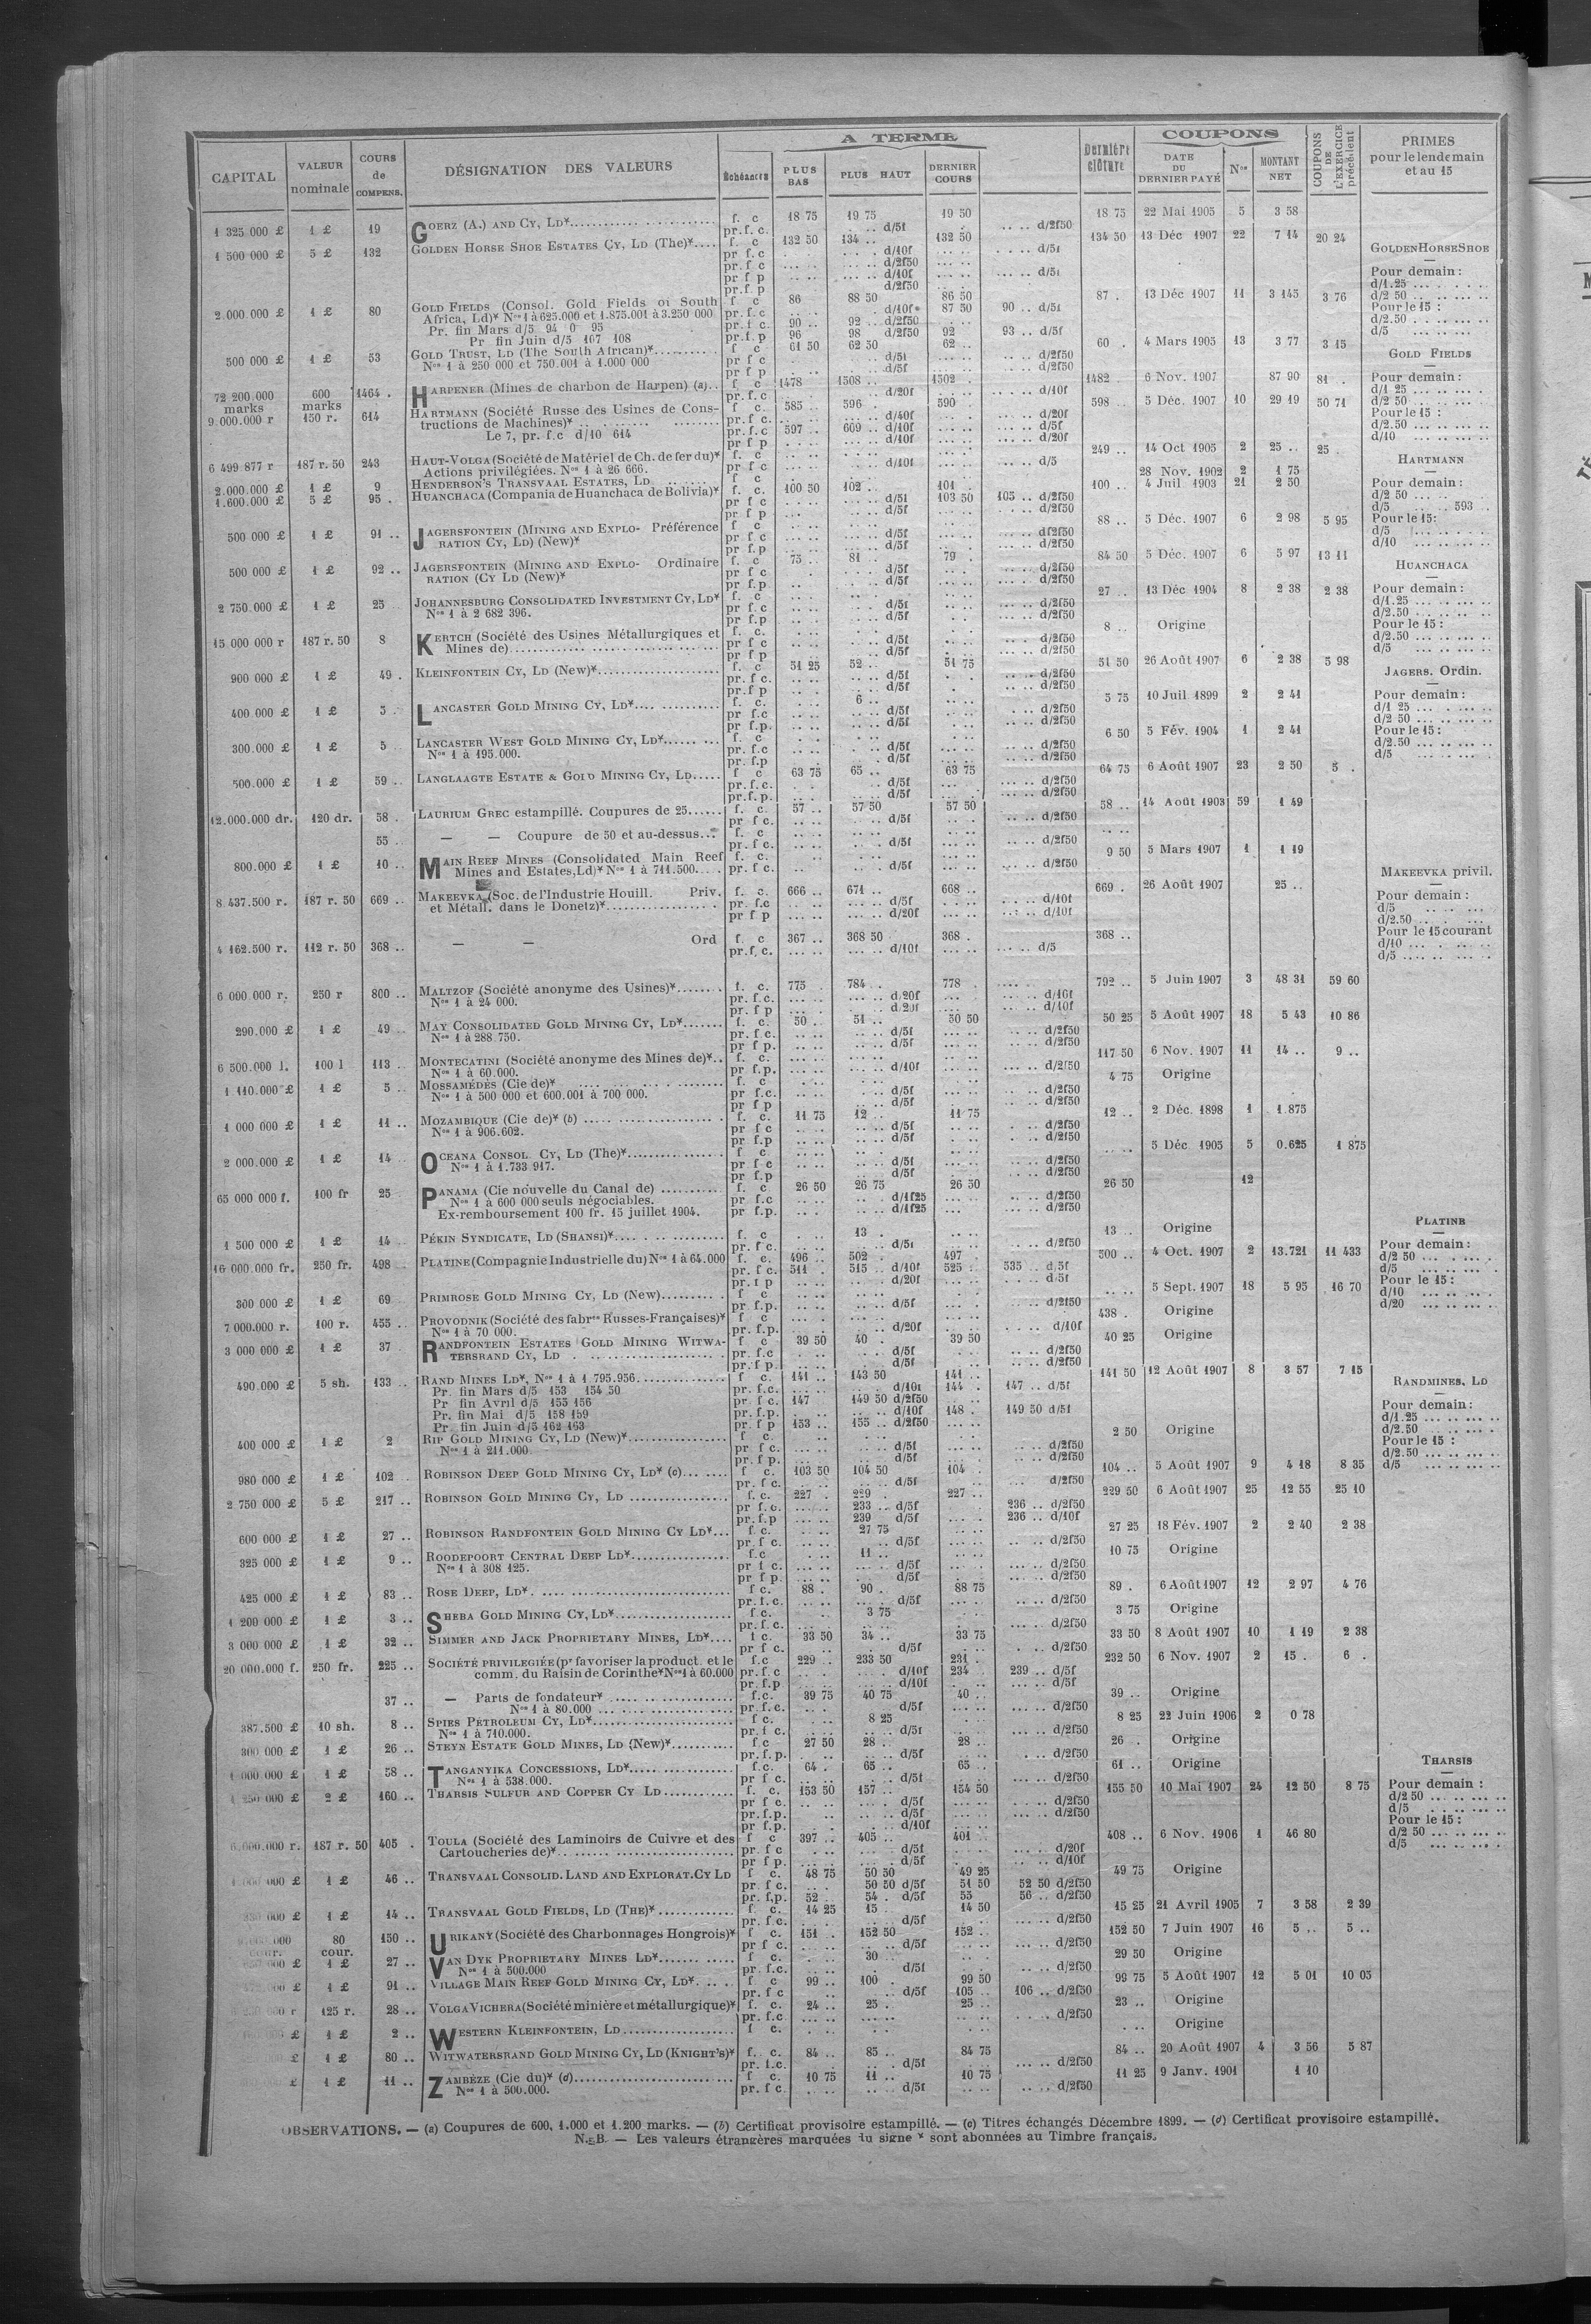 A TERME
COUPONS
CAPITAL
VALEUR nominale
COURS de COMPENS.
DÉSIGNATION DES VALEURS
Échéances
PLUS BAS
PLUS HAUT
DERNIER COURS
Dernière clôture
DATE DU DERNIER PAYÉ
Nos
MONTANT NET
COUPONS DE L'EXERCICE précédent
PRIMES pour le lendemain et au 15
1 325 000 £ 1 £ 19 GOERZ (A.) AND CY, LD* f. c 18 75 19 75 19 50 18 75 22 Mai 1905 5 3 58
pr. f. c. d/5f d/2f50
1 500 000 £ 5 £ 132 GOLDEN HORSE SHOE ESTATES CY, LD (The)* f. c 132 50 134 .. 132 50 134 50 13 Déc 1907 22 7 14 20 24
pr f. c d/10f d/5f
pr f c d/2f50
pr f p d/10f d/5f
pr. f. p d/2f50
2.000.000 £ 1 £ 80 GOLD FIELDS (Consol. Gold Fields of South f c 86 88 50 86 50 87 . 13 Déc 1907 11 3 145 3 76
Africa, Ld)* Nos 1 à 625.000 et 1.875.001 à 3.250 000 pr. f. c d/10f 87 50 90 .. d/5f
Pr. fin Mars d/5 94 0 95 pr. f c. 90 .. 92 .. d/2f50
Pr fin Juin d/5 107 108 pr. f. p 96 98 d/2f50 92 93 .. d/5f
500 000 £ 1 £ 53 GOLD TRUST, LD (The South African)* f c 61 50 62 50 62 .. 60 . 4 Mars 1905 13 3 77 3 15
Nos 1 à 250 000 et 750.001 à 1.000 000 pr f c d/5f d/2f50
pr f p d/5f d/2f50
72 200.000 marks 600 marks 1464 . HARPENER (Mines de charbon de Harpen) (a).. f c 1478 1508 .. 1502 . 1482 . 6 Nov. 1907 87 90 81 .
pr. f. c d/20f d/10f
9.000.000 r 150 r. 614 HARTMANN (Société Russe des Usines de Cons- f c. 585 .. 596 . 590 598 .. 5 Déc. 1907 10 29 19 50 71
tructions de Machines)* pr. f c. d/40f d/20f
Le 7, pr. f.c d/10 614 pr. f. c 597 .. 609 .. d/10f d/5f
pr f p d/10f d/20f
6 499 877 r 187 r. 50 243 HAUT-VOLGA (Société de Matériel de Ch. de fer du)* f. c 249 .. 14 Oct 1905 2 25 .. 25 .
Actions privilégiées. Nos 1 à 26 666. pr f c d/10f d/5
2.000.000 £ 1 £ 9 HENDERSON'S TRANSVAAL ESTATES, LD f c 28 Nov. 1902 2 1 75
1.600.000 £ 5 £ 95 . HUANCHACA (Compania de Huanchaca de Bolivia)* f. c. 100 50 102 .. 101 .. 100 .. 4 Juil 1903 21 2 50
pr f c d/5f 103 50 105 .. d/2f50
pr f p d/5f d/2f50
500 000 £ 1 £ 91 .. JAGERSFONTEIN (MINING AND EXPLO- Préférence f c 88 .. 5 Déc. 1907 6 2 98 5 95
RATION CY, LD) (New)* pr f c d/5f d/2f50
pr f. p d/5f d/2f50
500 000 £ 1 £ 92 .. JAGERSFONTEIN (MINING AND EXPLO- Ordinaire f. c 75 .. 81 .. 79 . 84 50 5 Déc. 1907 6 5 97 13 11
RATION (CY LD (New)* pr f c d/5f d/2f50
pr f.p d/5f d/2f50
2 750.000 £ 1 £ 25 JOHANNESBURG CONSOLIDATED INVESTMENT CY, LD* f. c 27 .. 13 Déc 1904 8 2 38 2 38
Nos 1 à 2 682 396. pr f. c d/5f d/2f50
pr f.p d/5f d/2f50
15 000 000 r 187 r. 50 8 KERTCH (Société des Usines Métallurgiques et f. c. 8 .. Origine
Mines de) pr f c d/5f d/2f50
pr f p d/5f d/2f50
900 000 £ 1 £ 49 . KLEINFONTEIN CY, LD (New)* f. c 51 25 52 .. 51 75 51 50 26 Août 1907 6 2 38 5 98
pr. f c. d/5f d/2f50
pr. f p d/5f d/2f50
400.000 £ 1 £ 5 LANCASTER GOLD MINING CY, LD* f. c. 6 .. 5 75 10 Juil 1899 2 2 41
pr f.c d/5f d/2f50
pr f.p. d/5f d/2f50
300.000 £ 1 £ 5 LANCASTER WEST GOLD MINING CY, LD* f. c 6 50 5 Fév. 1904 1 2 41
Nos 1 à 195.000. pr. f.c d/5f d/2f50
pr. f.p d/5f d/2f50
500.000 £ 1 £ 59 .. LANGLAAGTE ESTATE & GOLD MINING CY, LD f c 63 75 65 .. 63 75 64 75 6 Août 1907 23 2 50 5 .
pr. f. c. d/5f d/2f50
pr. f. p. d/5f d/2f50
12.000.000 dr. 120 dr. 58 . LAURIUM GREC estampillé. Coupures de 25 f. c. 57 .. 57 50 57 50 58 .. 14 Août 1903 59 1 49
pr f c. d/5f d/2f50
55 .. — — Coupure de 50 et au-dessus f. c
pr. f c. d/5f d/2f50
800.000 £ 1 £ 10 .. MAIN REEF MINES (Consolidated Main Reef f. c. 9 50 5 Mars 1907 1 1 19
Mines and Estates, Ld)* Nos 1 à 711.500 pr. f c. d/5f d/2f50
8.437.500 r. 187 r. 50 669 .. MAKEEVKA (Soc. de l'Industrie Houill. Priv. f. c. 666 .. 671 .. 668 .. 669 . 26 Août 1907 25 ..
et Métall. dans le Donetz)* pr. f.c d/5f d/10f
pr f p d/20f d/10f
4 162.500 r. 112 r. 50 368 .. — — Ord f. c 367 .. 368 50 368 . 368 ..
pr. f. c. d/10f d/5
6 000.000 r. 250 r 800 .. MALTZOF (Société anonyme des Usines)* f. c. 775 784 .. 778 . 792 .. 5 Juin 1907 3 48 31 59 60
Nos 1 à 24 000. pr. f. c. d/20f d/10f
pr. f p d/20f d/10f
290.000 £ 1 £ 49 .. MAY CONSOLIDATED GOLD MINING CY, LD* f c. 50 .. 51 .. 50 50 50 25 5 Août 1907 18 5 43 10 86
Nos 1 à 288 750. pr. f c. d/5f d/2f50
pr f p. d/5f d/2f50
6 500.000 l. 100 l 113 .. MONTECATINI (Société anonyme des Mines de)* f. c. 117 50 6 Nov. 1907 11 14 .. 9 ..
Nos 1 à 60.000. pr f.p. d/10f d/2f50
1 110.000 £ 1 £ 5 .. MOSSAMÉDÈS (Cie de)* f. c 4 75 Origine
Nos 1 à 500 000 et 600.001 à 700 000. pr f.c. d/5f d/2f50
pr f p d/5f d/2f50
1 000 000 £ 1 £ 11 .. MOZAMBIQUE (Cie de)* (b) f. c. 11 75 12 .. 11 75 12 .. 2 Déc. 1898 1 1.875
Nos 1 à 906.602. pr f c d/5f d/2f50
pr f.p d/5f d/2f50
2 000.000 £ 1 £ 14 OCEANA CONSOL CY, LD (The)* f c. 5 Déc 1905 5 0.625 1 875
Nos 1 à 1.733 917. pr f c d/5f d/2f50
pr f.p d/5f d/2f50
65 000 000 f. 100 fr 25 PANAMA (Cie nouvelle du Canal de) f. c 26 50 26 75 26 50 26 50 12
Nos 1 à 600 000 seuls négociables. pr f.c d/1f25 d/2f50
Ex-remboursement 100 fr. 15 juillet 1904. pr f.p. d/1f25 d/2f50
1 500 000 £ 1 £ 14 .. PÉKIN SYNDICATE, LD (SHANSI)* f. c 13 . 13 .. Origine
pr. f c. d/5f d/2f50
16 000.000 fr. 250 fr. 498 .. PLATINE (Compagnie Industrielle du) Nos 1 à 64.000 f. c. 496 .. 502 . 497 . 500 .. 4 Oct. 1907 2 13.721 11 433
pr. f c. 511 . 515 .. d/10f 525 . 535 .. d/5f
pr. f p d/20f d/5f
300 000 £ 1 £ 69 PRIMROSE GOLD MINING CY, LD (New) f c 5 Sept. 1907 18 5 95 16 70
pr f.p. d/5f d/2f50
7 000.000 r. 100 r. 455 .. PROVODNIK (Société des fabres Russes-Françaises)* f. c. 438 . Origine
Nos 1 à 70 000. pr. f.p. d/20f d/10f
3 000 000 £ 1 £ 37 RANDFONTEIN ESTATES GOLD MINING WITWA- f c 39 50 40 . 39 50 40 25 Origine
TERSRAND CY, LD pr. f.c d/5f d/2f50
pr. f p. d/5f d/2f50
490.000 £ 5 sh. 133 .. RAND MINES LD*, Nos 1 à 1 795.956 f c. 141 .. 143 50 141 .. 141 50 12 Août 1907 8 3 57 7 15
Pr. fin Mars d/5 153 154 50 pr. f. c. d/10f 144 . 147 .. d/5f
Pr fin Avril d/5 155 156 pr. f c. 147 149 50 d/2f50
Pr. fin Mai d/5 158 159 pr. f.p. d/10f 148 . 149 50 d/5f
Pr fin Juin d/5 162 163 pr. f p 153 .. 155 .. d/2f50
400 000 £ 1 £ 2 RIP GOLD MINING CY, LD (New)* f c. 2 50 Origine
Nos 1 à 211.000 pr f c. d/5f d/2f50
pr. f p. d/5f d/2f50
980 000 £ 1 £ 102 . ROBINSON DEEP GOLD MINING CY, LD* (c) f c. 103 50 104 50 104 . 104 .. 5 Août 1907 9 4 18 8 35
pr. f c. d/5f d/2f50
2 750 000 £ 5 £ 217 .. ROBINSON GOLD MINING CY, LD f. c. 227 . 229 . 227 .. 229 50 6 Août 1907 25 12 55 25 10
pr f. c. 233 .. d/5f 236 .. d/2f50
pr. f. p 239 d/5f 236 .. d/10f
600 000 £ 1 £ 27 .. ROBINSON RANDFONTEIN GOLD MINING CY LD* f c. 27 75 27 25 18 Fév. 1907 2 2 40 2 38
pr. f c. d/5f d/2f50
325 000 £ 1 £ 9 .. ROODEPOORT CENTRAL DEEP LD* f.c 11 .. 10 75 Origine
Nos 1 à 308 125. pr f c. d/5f d/2f50
pr f p. d/5f d/2f50
425 000 £ 1 £ 83 .. ROSE DEEP, LD* f c. 88 . 90 . 88 75 89 . 6 Août 1907 12 2 97 4 76
pr. f. c. d/5f d/2f50
1 200 000 £ 1 £ 3 .. SHEBA GOLD MINING CY, LD* f. c. 3 75 3 75 Origine
pr. f. c. d/2f50
3 000 000 £ 1 £ 32 .. SIMMER AND JACK PROPRIETARY MINES, LD* f c. 33 50 34 .. 33 75 33 50 8 Août 1907 10 1 19 2 38
pr f c. d/5f d/2f50
20 000.000 f. 250 fr. 225 .. SOCIÉTÉ PRIVILEGIÉE (pr favoriser la product. et le f.c 229 .. 233 50 231 . 232 50 6 Nov. 1907 2 15 . 6 .
comm. du Raisin de Corinthe* Nos 1 à 60.000 pr. f. c d/10f 234 239 .. d/5f
pr. f.p d/10f d/5f
37 .. — Parts de fondateur* f.c. 39 75 40 75 40 .. 39 .. Origine
Nos 1 à 80.000 pr. f. c. d/5f d/2f50
387.500 £ 10 sh. 8 .. SPIES PÉTROLEUM CY, LD* f c. 8 25 8 25 22 Juin 1906 2 0 78
Nos 1 à 710.000. pr. f c. d/5f d/2f50
300 000 £ 1 £ 26 .. STEYN ESTATE GOLD MINES, LD (New)* f.c 27 50 28 .. 28 .. 26 . Origine
pr. f. p. d/5f d/2f50
1 000 000 £ 1 £ 58 .. TANGANYIKA CONCESSIONS, LD* f.c. 64 . 65 .. 65 .. 61 .. Origine
Nos 1 à 538.000. pr f c. d/5f d/2f50
1 250 000 £ 2 £ 160 .. THARSIS SULFUR AND COPPER CY LD f. c. 153 50 157 .. 154 50 155 50 10 Mai 1907 24 12 50 8 75
pr f c. d/5f d/2f50
pr. f.p. d/5f d/2f50
pr f.p. d/10f
6.000.000 r. 187 r. 50 405 . TOULA (Société des Laminoirs de Cuivre et des f c 397 .. 405 .. 401 .. 408 .. 6 Nov. 1906 1 46 80
Cartoucheries de)* pr. f c d/5f d/20f
pr f p. d/5f d/10f
000 £ 1 £ 46 .. TRANSVAAL CONSOLID. LAND AND EXPLORAT. CY LD f c. 48 75 50 50 49 25 49 75 Origine
pr. f c. 50 50 d/5f 51 50 52 50 d/2f50
pr. f.p. 52 54 . d/5f 55 56 .. d/2f50
000 £ 1 £ 14 .. TRANSVAAL GOLD FIELDS, LD (THE)* f. c. 14 25 15 . 14 50 15 25 21 Avril 1905 7 3 58 2 39
pr. f c. d/5f d/2f50
000 cour. 80 cour. 150 .. URIKANY (Société des Charbonnages Hongrois)* f c. 151 . 152 50 152 .. 152 50 7 Juin 1907 16 5 .. 5 ..
pr f c. d/5f d/2f50
000 £ 1 £ 27 .. VAN DYK PROPRIETARY MINES LD* f c. 30 .. 29 50 Origine
Nos 1 à 500.000 pr. f.c. d/5f d/2f50
000 £ 1 £ 91 .. VILLAGE MAIN REEF GOLD MINING CY, LD* f c 99 .. 100 . 99 50 99 75 5 Août 1907 12 5 01 10 05
pr. f c d/5f 105 .. 106 .. d/2f50
000 r 125 r. 28 .. VOLGA VICHERA (Société minière et métallurgique)* f. c. 24 .. 25 . 25 .. 23 .. Origine
pr. f.c d/2f50
£ 1 £ 2 .. WESTERN KLEINFONTEIN, LD f c. Origine
£ 1 £ 80 .. WITWATERSRAND GOLD MINING CY, LD (KNIGHT'S)* f. c. 84 .. 85 .. 84 75 84 .. 20 Août 1907 4 3 56 5 87
pr. f.c. d/5f d/2f50
£ 1 £ 11 .. ZAMBÈZE (Cie du)* (d) f c. 10 75 11 .. 10 75 11 25 9 Janv. 1901 1 10
Nos 1 à 500.000. pr. f c. d/5f d/2f50
GOLDEN HORSE SHOE
Pour demain :
d/1.25
d/2 50
Pour le 15 :
d/2.50
d/5
GOLD FIELDS
Pour demain :
d/1 25
d/2 50
Pour le 15 :
d/2.50
d/10
HARTMANN
Pour demain :
d/2 50
d/5 593 ..
Pour le 15 :
d/5
d/10
HUANCHACA
Pour demain :
d/1.25
d/2.50
Pour le 15 :
d/2.50
d/5
JAGERS. Ordin.
Pour demain :
d/1 25
d/2 50
Pour le 15 :
d/2.50
d/5
MAKEEVKA privil.
Pour demain :
d/5
d/2.50
Pour le 15 courant
d/10
d/5
PLATINE
Pour demain :
d/2 50
d/5
Pour le 15 :
d/10
d/20
RANDMINES, LD
Pour demain :
d/1.25
d/2.50
Pour le 15 :
d/2.50
d/5
THARSIS
Pour demain :
d/2 50
d/5
Pour le 15 :
d/2 50
d/5
OBSERVATIONS. — (a) Coupures de 600, 1.000 et 1.200 marks. — (b) Certificat provisoire estampillé. — (c) Titres échangés Décembre 1899. — (d) Certificat provisoire estampillé.
N.-B. — Les valeurs étrangères marquées du signe * sont abonnées au Timbre français.